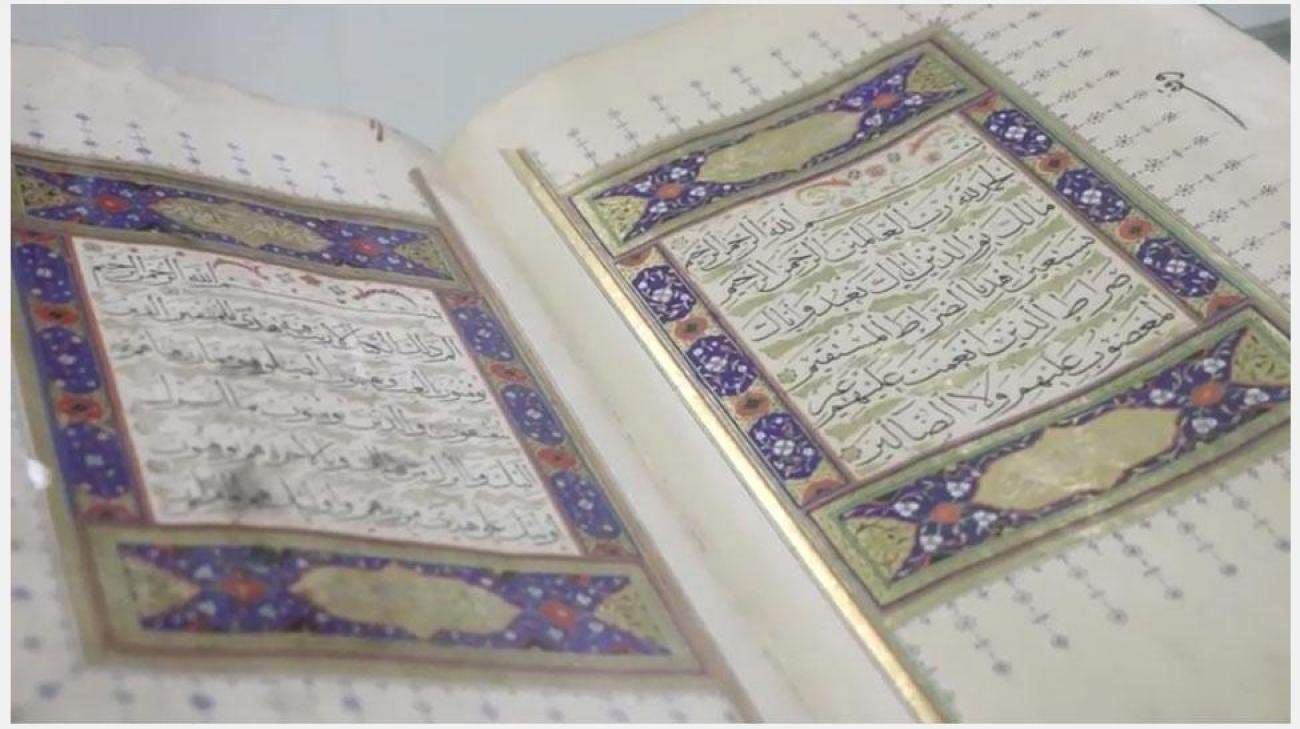 بسم الله الرحمن الرحيم
الحمد لله رب العالمين الرحمن الرحيم
مالك يوم الدين اياك نعبد واياك
نستعين اهدنا الصراط المستقيم
صراط الذين انعمت عليهم غير
المغضوب عليهم ولا الضالين
بسم الله الرحمن الرحيم
الم ذلك الكتاب لا ريب فيه هدى للمتقين الذين
يؤمنون بالغيب ويقيمون الصلوة ومما
ينفقون والذين يؤمنون بما انزل
اليك وما انزل من وبالاخرة هم يوقنون
اولئك على هدى من ربهم واولئك هم